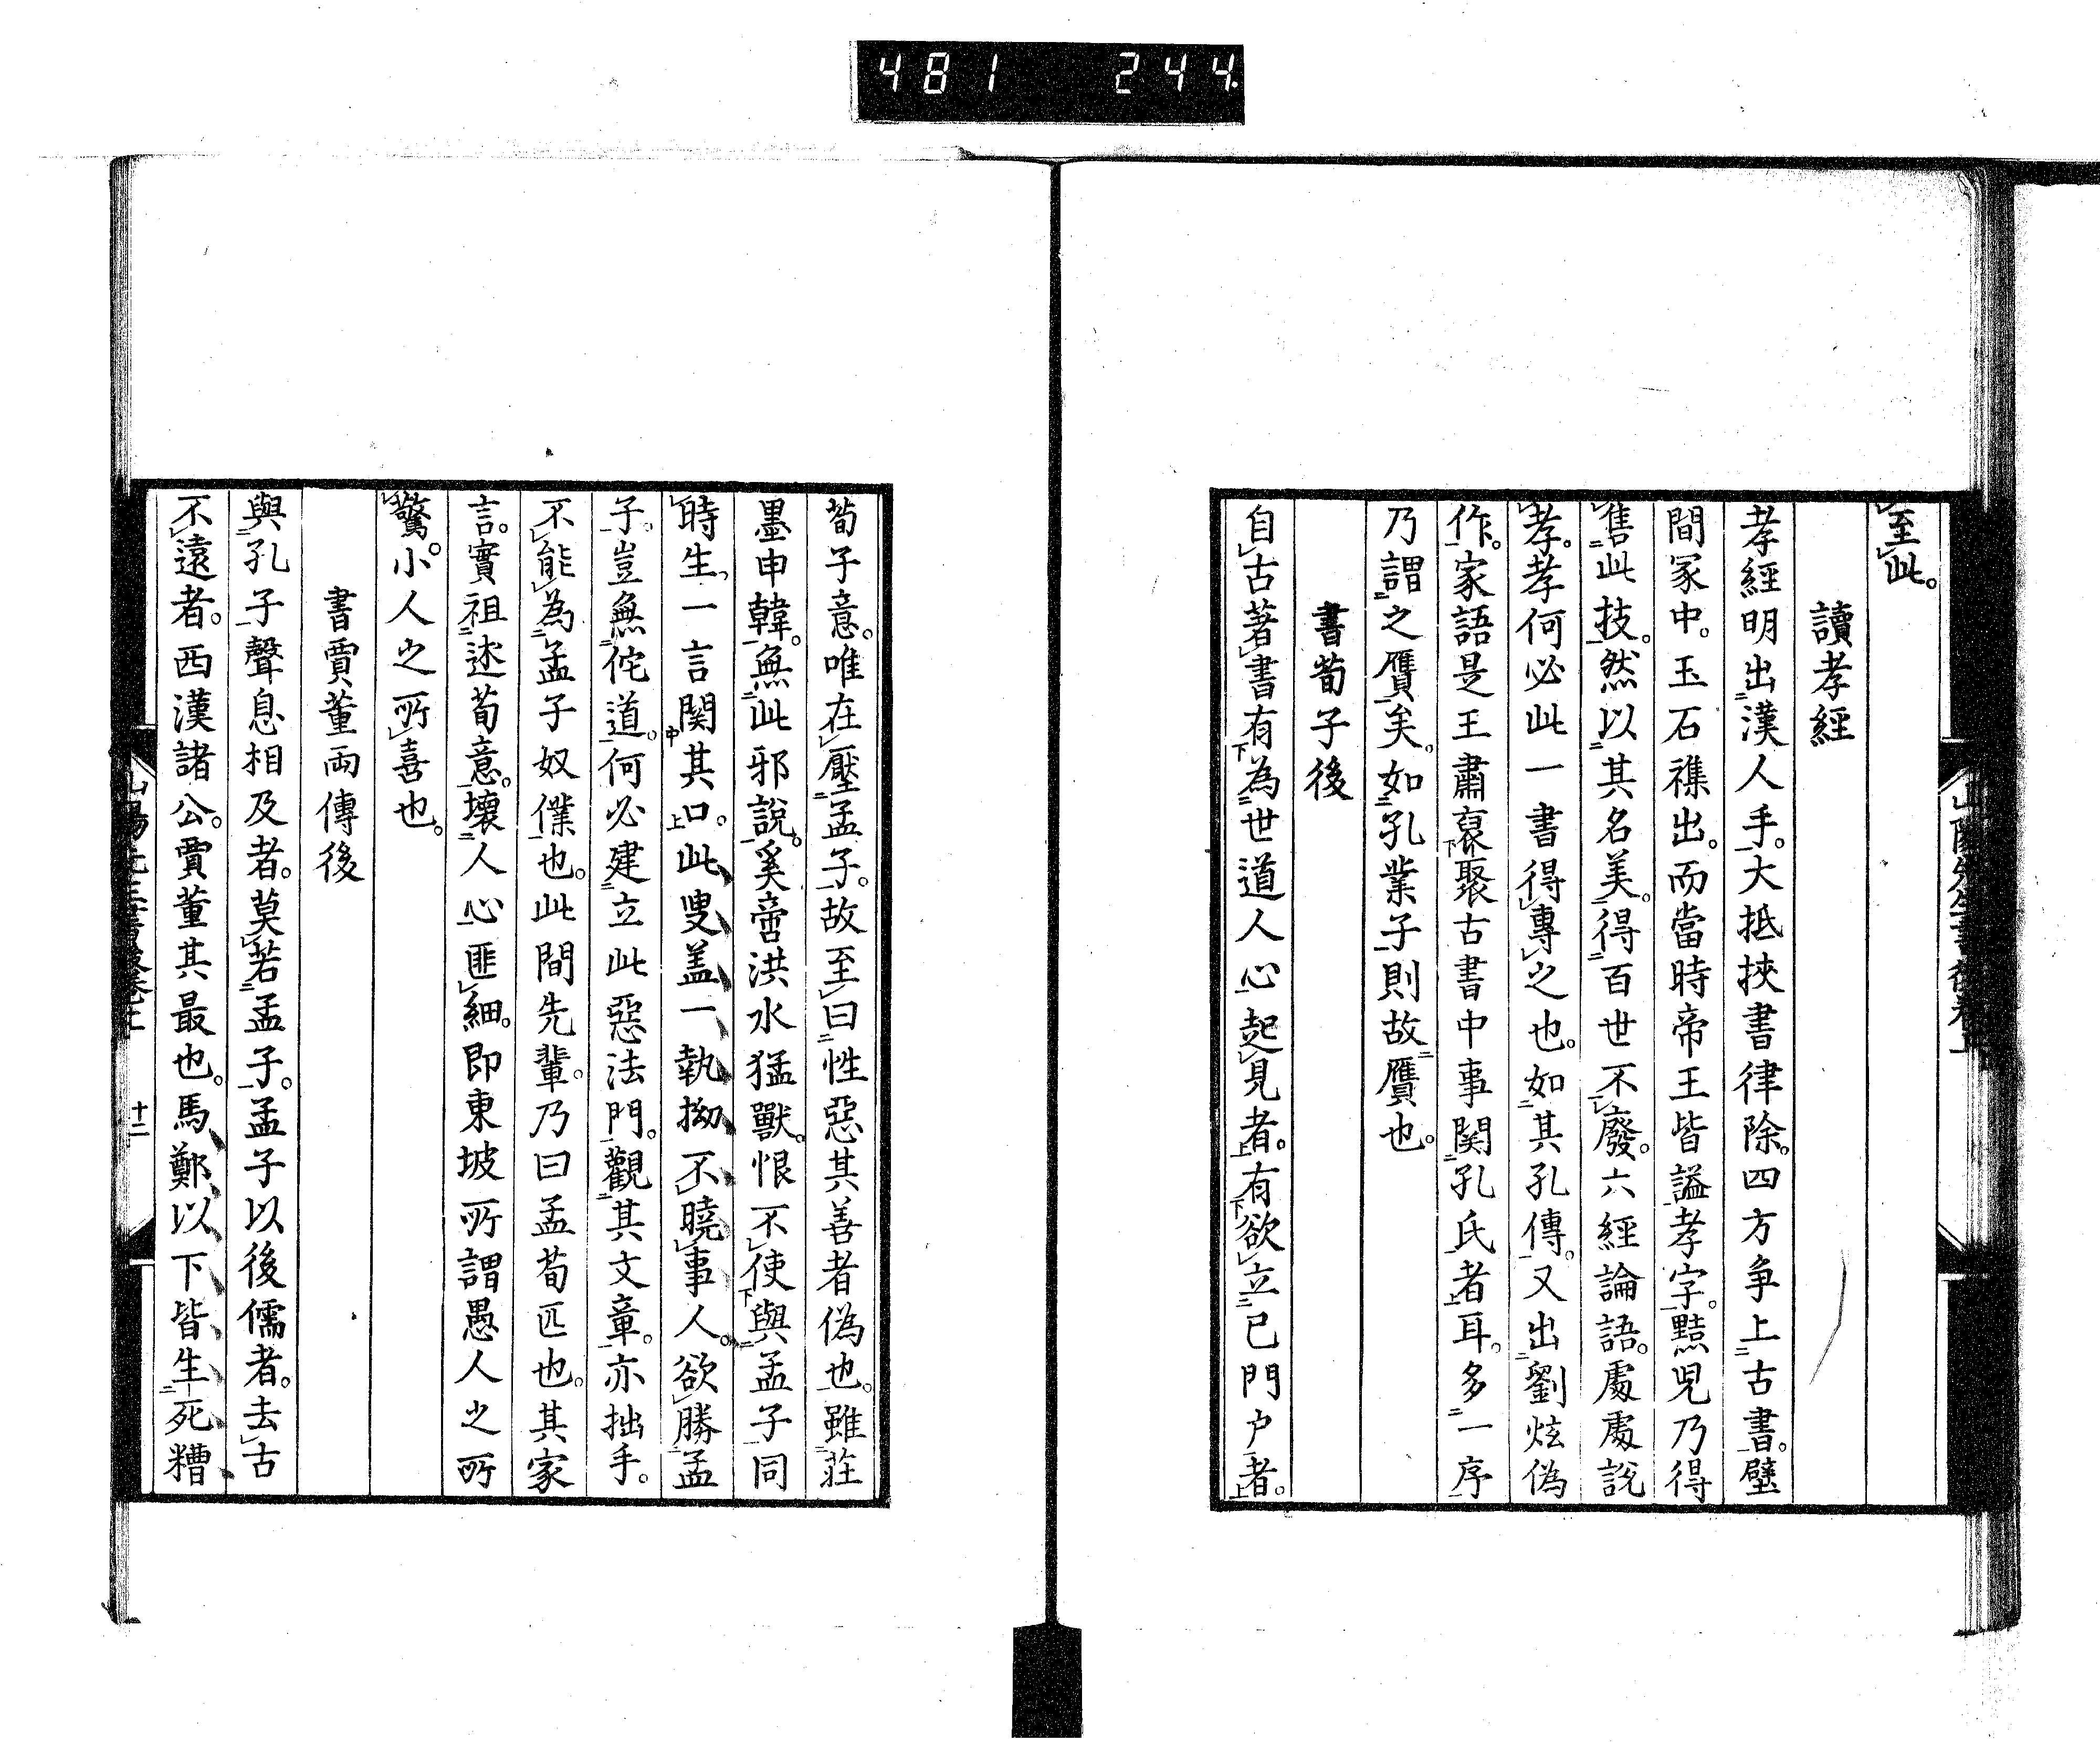 481 244
至此。
讀孝經
孝經明出漢人手。大抵挾書律除。四方爭上古書。壁
間冢中。玉石襍出。而當時帝王皆謚孝字。黠兒乃得
售此技。然以其名美。得百世不廢。六經論語。處處說
孝。孝何必此一書得專之也。如其孔傳。又出劉炫偽
作。家語是王肅裒聚古書中事関孔氏者耳。多一序
乃謂之贋矣。如孔業子則故贋也。
書荀子後
自古著書有為世道人心起見者。有欲立己門户者。
荀子意。唯在壓孟子。故至曰性惡其善者偽也。雖莊
墨申韓。無此邪說。奚啻洪水猛獸。恨不使與孟子同
時生。一言関其口。此叟盖一執拗不曉事人。欲勝孟
子。豈無佗道。何必建立此惡法門。觀其文章。亦拙手。
不能為孟子奴僕也。此間先輩。乃曰孟荀匹也。其家
言。實祖述荀意。壞人心匪細。即東坡所謂愚人之所
驚。小人之所喜也。
書賈董両傳後
與孔子聲息相及者。莫若孟子。孟子以後儒者。去古
不遠者。西漢諸公。賈董其最也。馬鄭以下皆生死糟
十二